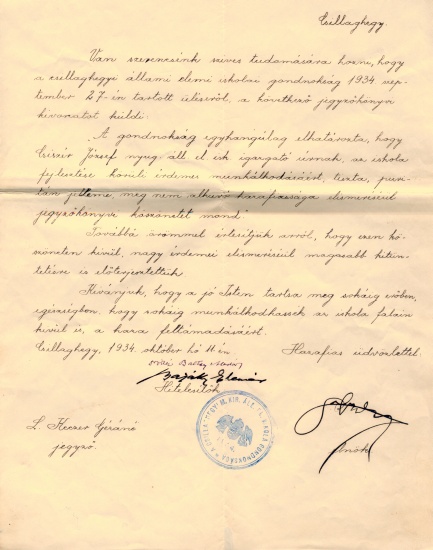 Csillaghegy.
Van szerencsénk szíves tudomására hozni, hogy
a csillaghegyi állami elemi iskolai gondnokság 1934. szep-
tember 27-én tartott üléséről, a következő jegyzőkönyvi
kivonatot küldi:
A gondnokság egyhangúlag elhatározta, hogy
Csiszér József nyug. áll. el. isk. igazgató úrnak, az iskola
fejlesztése körüli érdemes munkálkodásáért, tiszta, puri-
tán jelleme, meg nem alkuvó hazafiassága elismeréséül
jegyzőkönyvi köszönetet mond.
Továbbá örömmel értesítjük arról, hogy ezen kö-
szöneten kívül, nagy érdemei elismeréséül magasabb kitün-
tetésre is előterjesztettük.
Kívánjuk, hogy a jó Isten tartsa meg sokáig erőben,
egészségben, hogy sokáig munkálkodhassék az iskola falain
kívül is, a haza feltámadásáért.
Csillaghegy, 1934. október hó 11-én
Hazafias üdvözlettel
Hitelesítők
elnök
L. Keczer Géráné
jegyző.